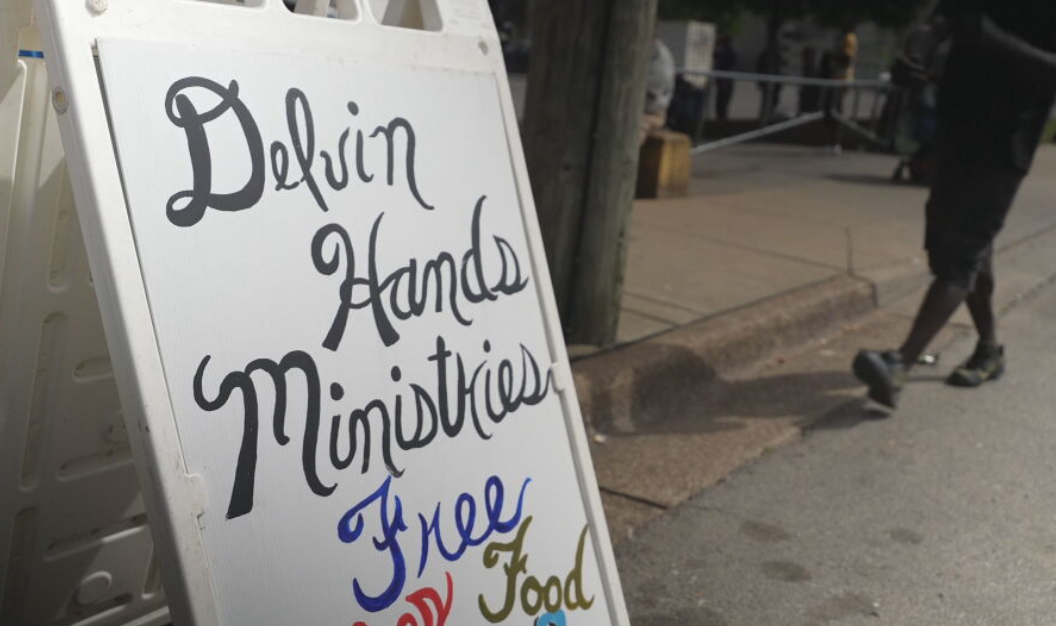 Delvin
Hands
Ministries
Free
Food